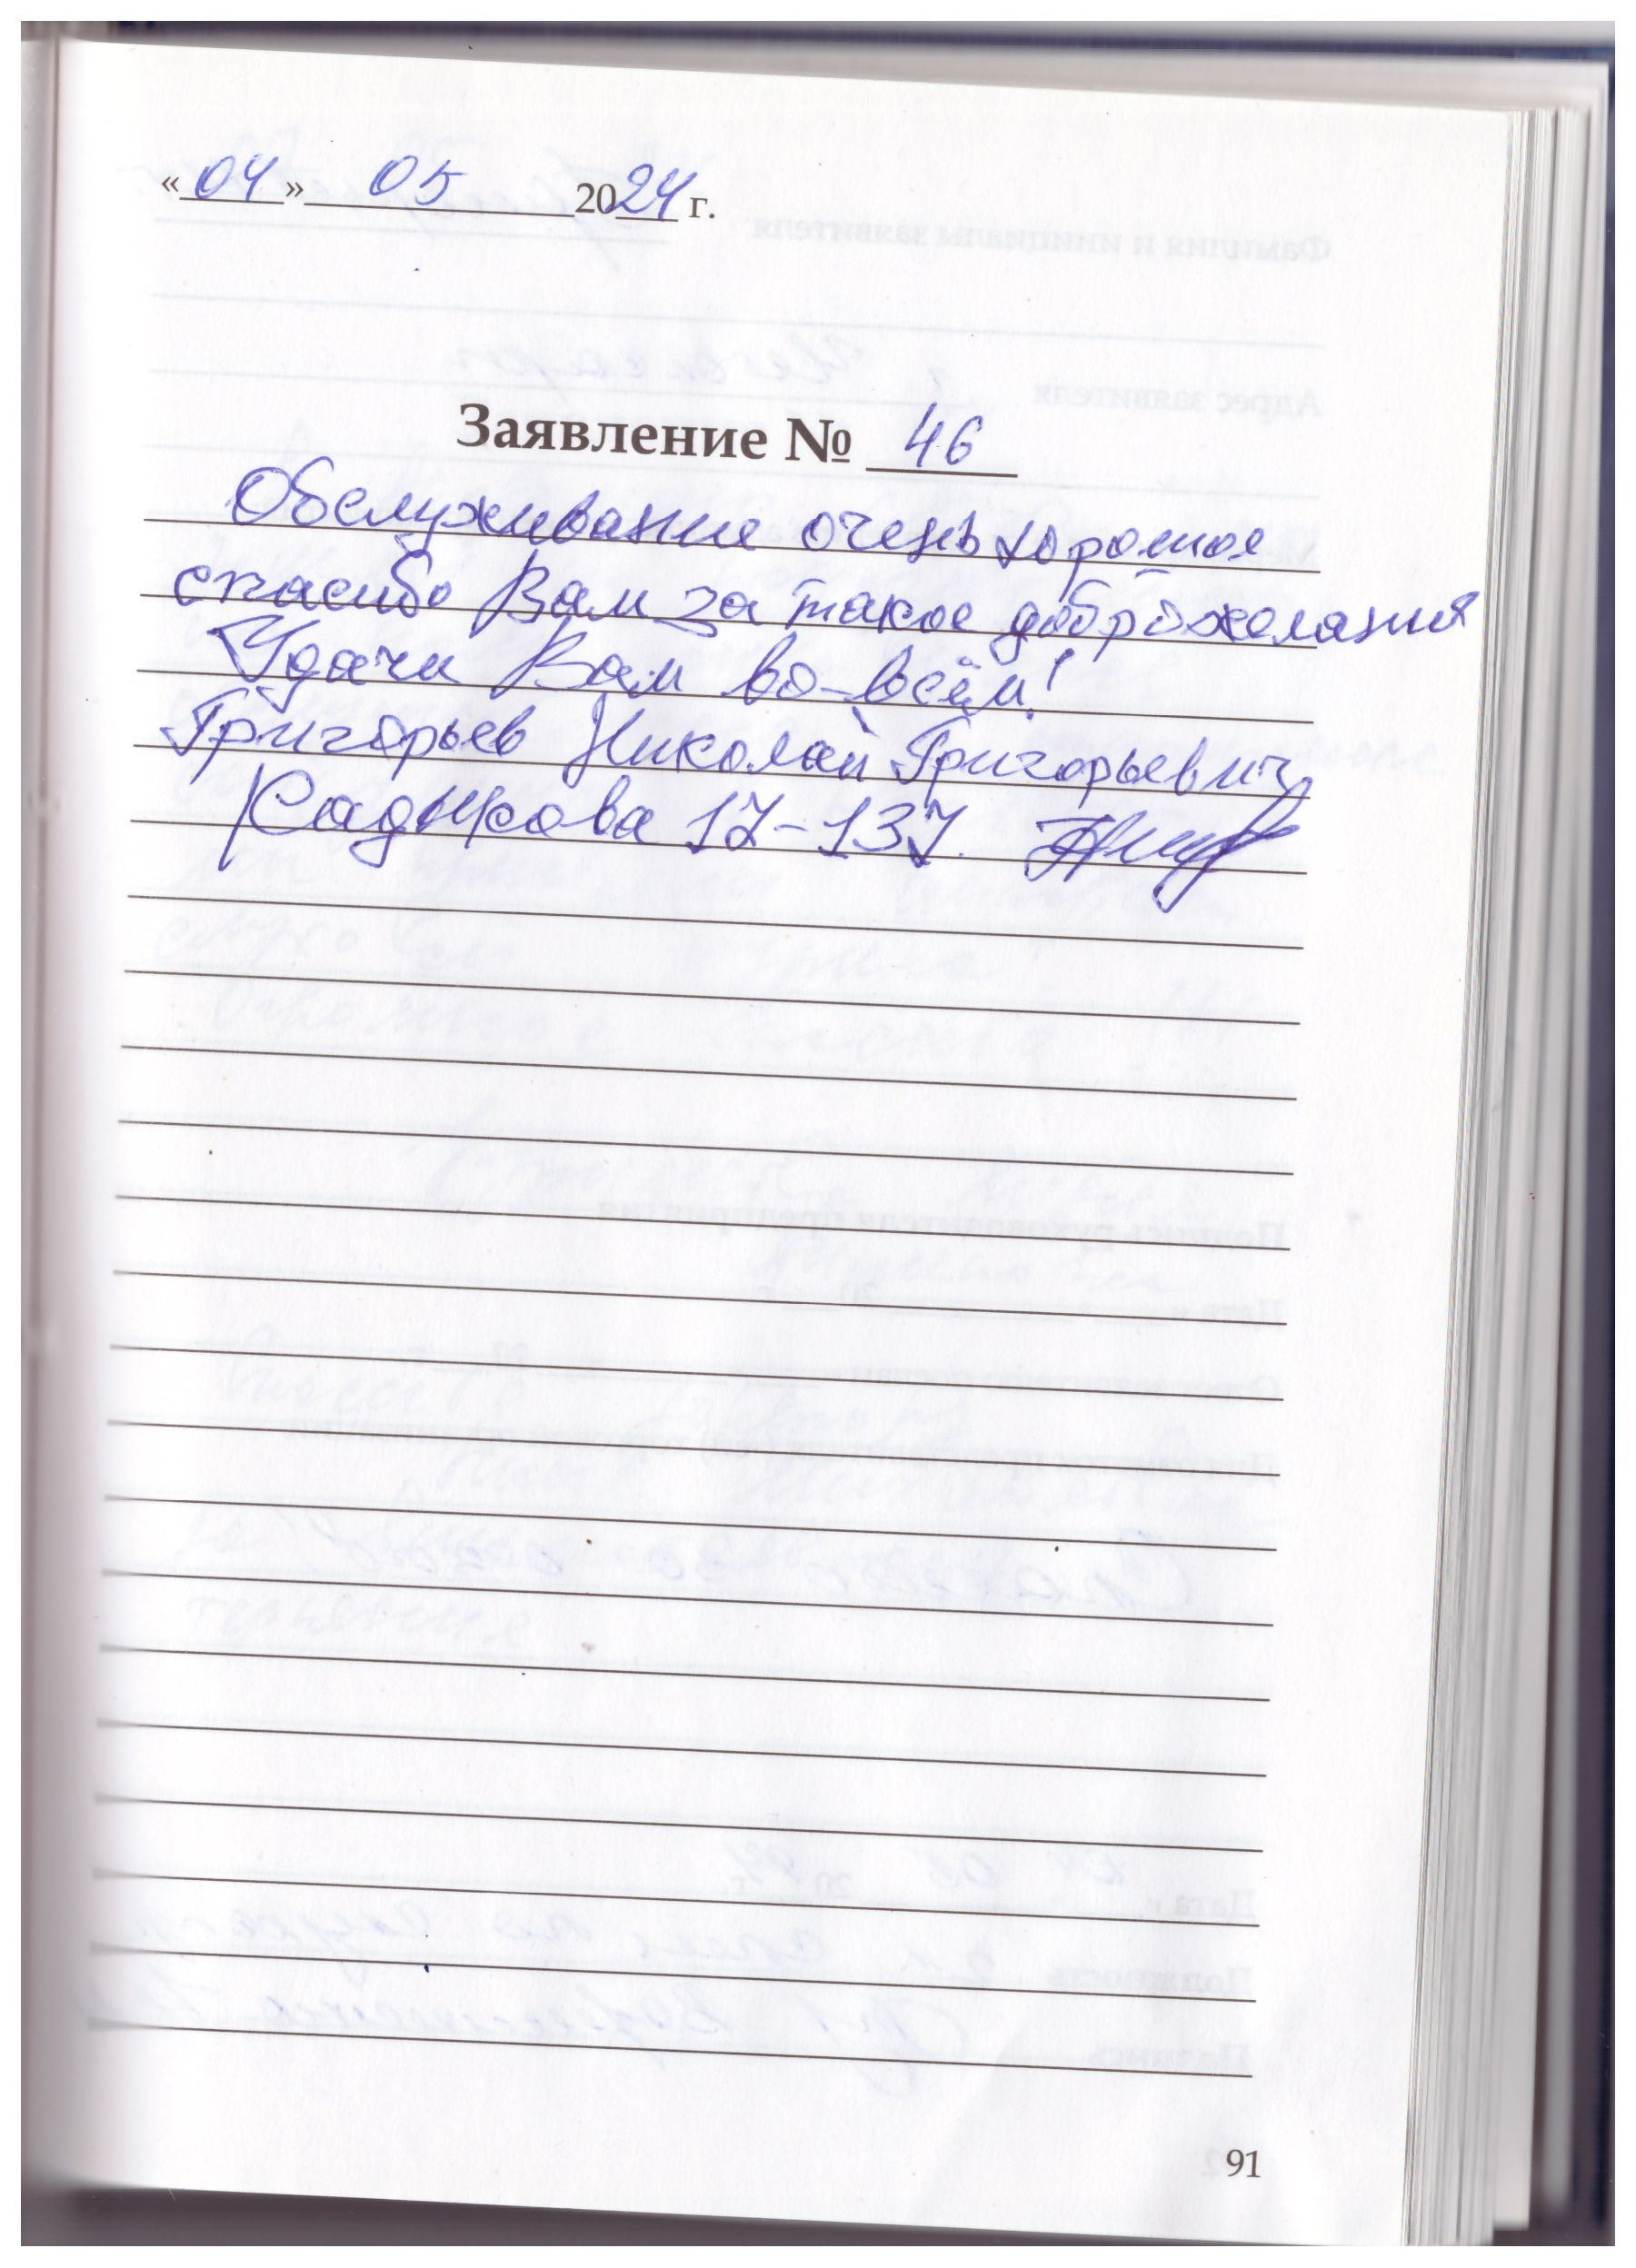 «04» 05 2024 г.
Заявление № 46
Обслуживание очень хорошое
спасибо Вам за такое доброжелания
Удачи Вам во-всём!
Григорьев Николай Григорьевич
Садыкова 17-137.
91